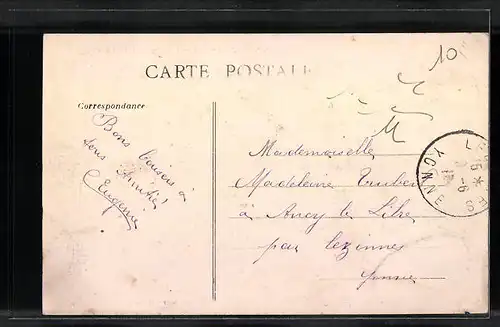 10
CARTE POSTALE
Correspondance
Bons baisers à
tous
Eugénie
Mademoiselle
Madeleine
à Ancy le Libre
par Lezinnes
Yonne
YONNE